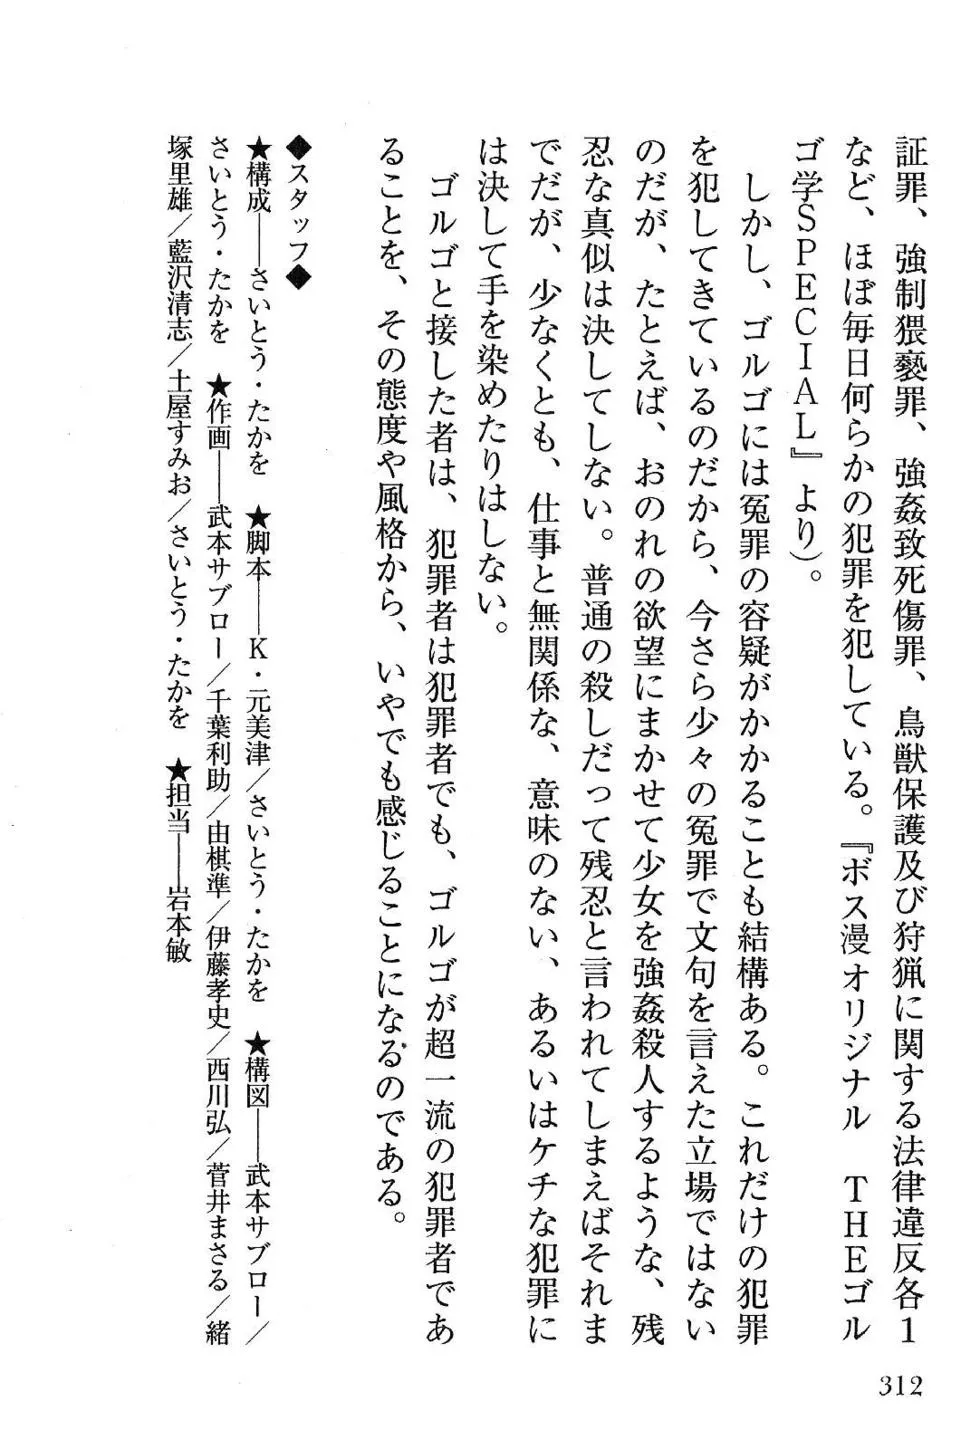 証罪、強制猥褻罪、強姦致死傷罪、鳥獣保護及び狩猟に関する法律違反各1
など、ほぼ毎日何らかの犯罪を犯している。『ボス漫オリジナル　THEゴル
ゴ学SPECIAL』より）。
　しかし、ゴルゴには冤罪の容疑がかかることも結構ある。これだけの犯罪
を犯してきているのだから、今さら少々の冤罪で文句を言えた立場ではない
のだが、たとえば、おのれの欲望にまかせて少女を強姦殺人するような、残
忍な真似は決してしない。普通の殺しだって残忍と言われてしまえばそれま
でだが、少なくとも、仕事と無関係な、意味のない、あるいはケチな犯罪に
は決して手を染めたりはしない。
　ゴルゴと接した者は、犯罪者は犯罪者でも、ゴルゴが超一流の犯罪者であ
ることを、その態度や風格から、いやでも感じることになるのである。
◆スタッフ◆
★構成――さいとう・たかを　★脚本――K・元美津／さいとう・たかを　★構図――武本サブロー／
さいとう・たかを　★作画――武本サブロー／千葉利助／由棋準／伊藤孝史／西川弘／菅井まさる／緒
塚里雄／藍沢清志／土屋すみお／さいとう・たかを　★担当――岩本敏
312